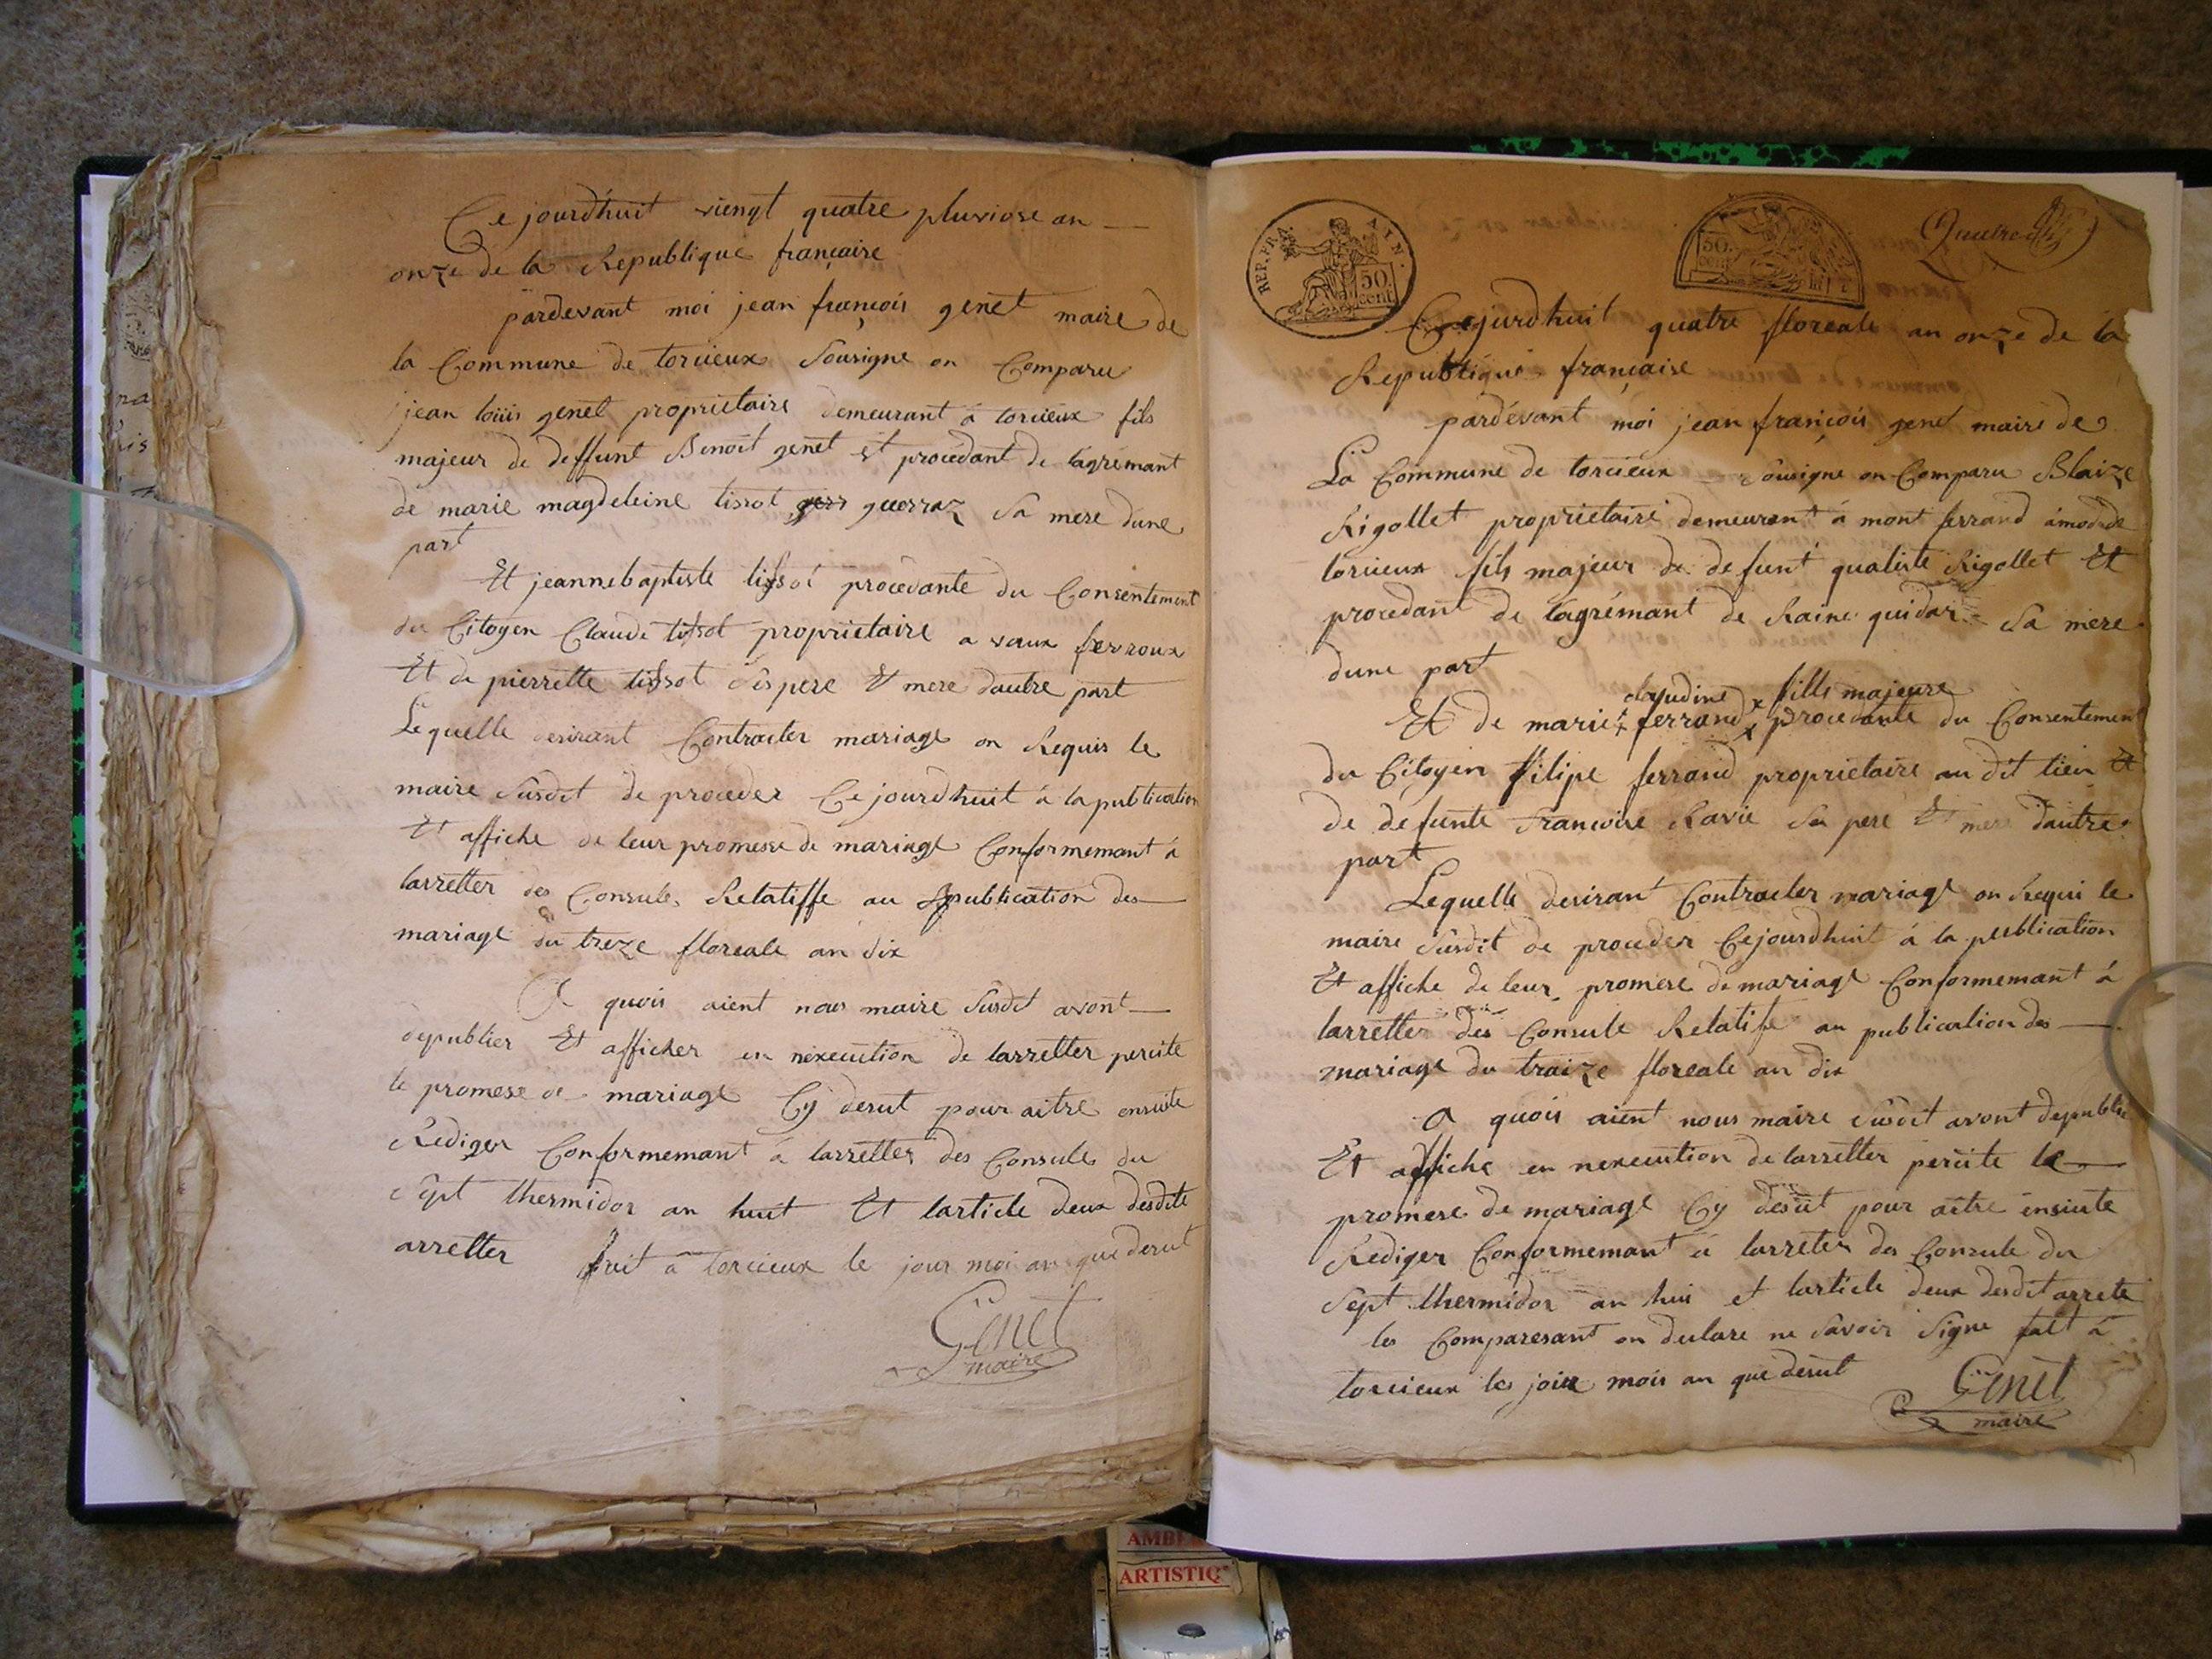 Ce jourdhuit viengt quatre pluviose an
onze de la Republique française
pardevant moi jean françois genet maire de
la Commune de torcieux Sousigne on Comparu
jean loüis genet proprietaire demeurant à torcieux fils
majeur de deffunt Benoit genet et procedant de lagrémant
de marie magdeleine tissot guerraz Sa mere dune
part
Et jeannebaptiste tissot procedante du Consentement
du Citoyen Claude tissot proprietaire a vaux fevroux
Et de pierrette tissot Ses pere Et mere dautre part
Lequelle desirant Contracter mariage on Requis le
maire Susdit de proceder Ce jourdhuit à la publication
Et affiche de leur promesse de mariage Conformemant à
larretter des Consuls Relatiffe au publication des
mariage du treze floreale an dix
A quois aient nous maire Susdit avont
depublier Et afficher en nexecution de larretter percite
le promese de mariage Cy desut pour aitre ensuite
Rediger Conformemant à larretter des Consule du
Sept thermidor an huit Et larticle deux desdite
arretter fait a torcieux le jour moi an que desut
Genet
maire
REP. FRA. AYN.
50
cent
50
cent
Cejurdhuit quatre floreale an onze de la
Republique française
pardevant moi jean françois genet maire de
La Commune de torcieux Sousigne on Comparu Blaize
Rigollet proprietaire demeurant à mont ferrand
torcieux fils majeur de defunt Rigollet Et
procedant de lagrémant de Raine guidar Sa mere
dune part
claudine fille majeure
Et de marie ferrand procedante du Consentement
du Citoyen filipe ferrand proprietaire au dit lieu Et
de defunte francoise Ravie Sa pere Et mere dautre
part
Lequelle desirant Contracter mariage on Requi le
maire Susdit de proceder Cejourdhuit à la publication
Et affiche de leur promese de mariage Conformemant à
larretter des Consule Relatife au publication des
mariage du traize floreale an dix
A quois aient nous maire Susdit avont depublie
Et affiche en nexecution de larretter percite le
promese de mariage Cy desut pour aitre ensiute
Rediger Conformemant à larreter des Consule du
Sept thermidor an hui et larticle deux desdit arrete
les Comparesant on declare ne Savoir Signe fait à
torcieux les jour mois an que desut
Genet
maire
AMB
ARTISTIQ